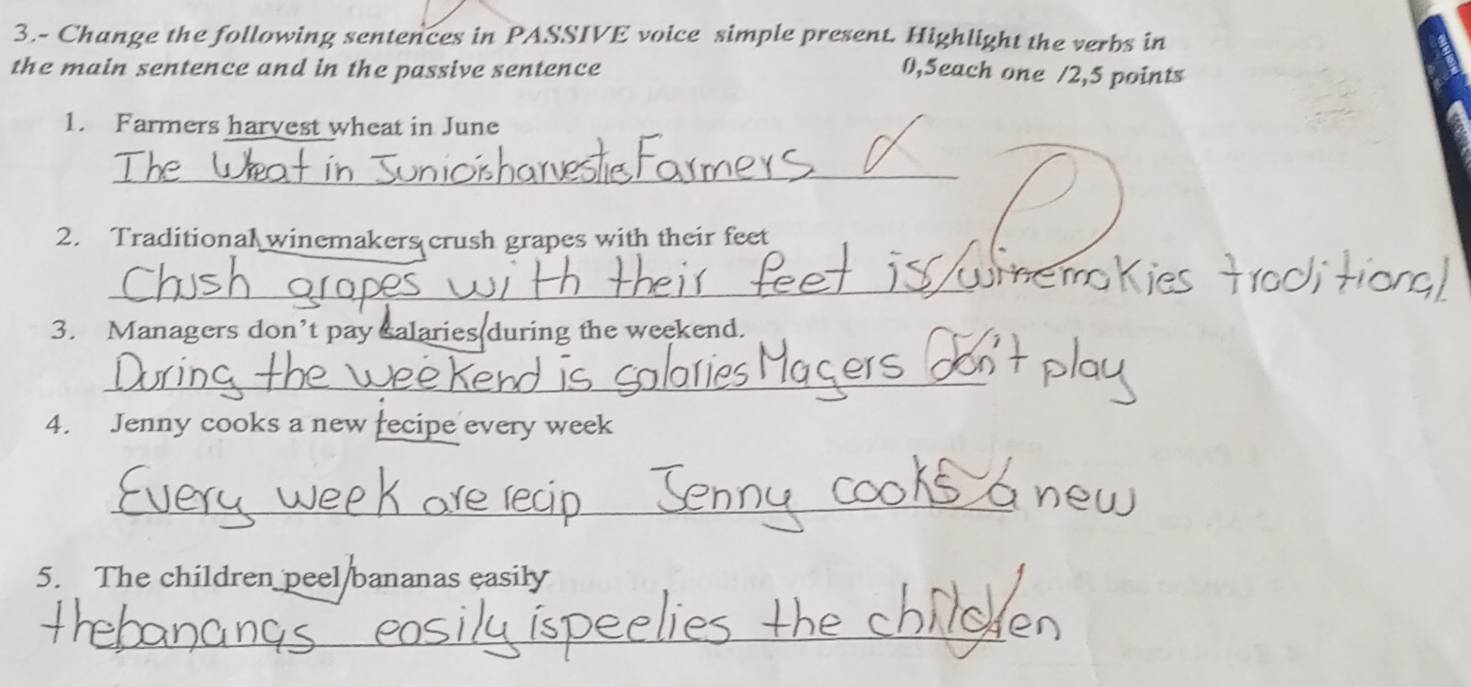 3.- Change the following sentences in PASSIVE voice simple present. Highlight the verbs in
the main sentence and in the passive sentence 0,5each one /2,5 points
1. Farmers harvest wheat in June
The Wheat in Junio is harvesties Farmers
2. Traditional winemakers crush grapes with their feet
Chush grapes with their feet is winemakies traditional
3. Managers don't pay salaries during the weekend.
During the weekend is salaries Magers don't play
4. Jenny cooks a new recipe every week
Every week are recip Jenny cooks a new
5. The children peel bananas easily
thebananas easily ispeelies the children